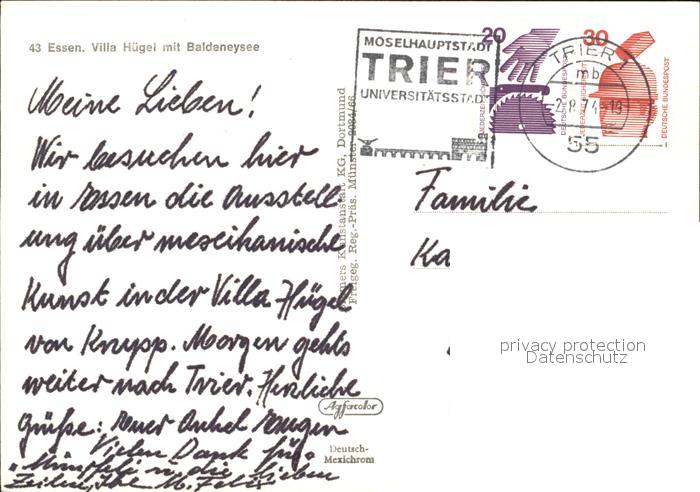 43 Essen. Villa Hügel mit Baldeneysee
Meine Lieben!
Wir besuchen hier
in Essen die Ausstell-
ung über mexikanische
Kunst in der Villa Hügel
von Krupp. Morgen gehts
weiter nach Trier. Herzliche
Grüße: Euer Onkel Eugen
Vielen Dank für
u. die lieben
Zeilen, Ihr
Kunstanstalt KG, Dortmund
Freigeg. Reg.-Präs. Münster 2084/66
Agfacolor
Deutsch-
Mexichrom
MOSELHAUPTSTADT
TRIER
UNIVERSITÄTSSTADT
20
30
JEDERZEIT SICHERHEIT
DEUTSCHE BUNDESPOST
JEDERZEIT SICHERHEIT
DEUTSCHE BUNDESPOST
TRIER
mb
-2.8.74-19
55
Familie
Ka
privacy protection
Datenschutz